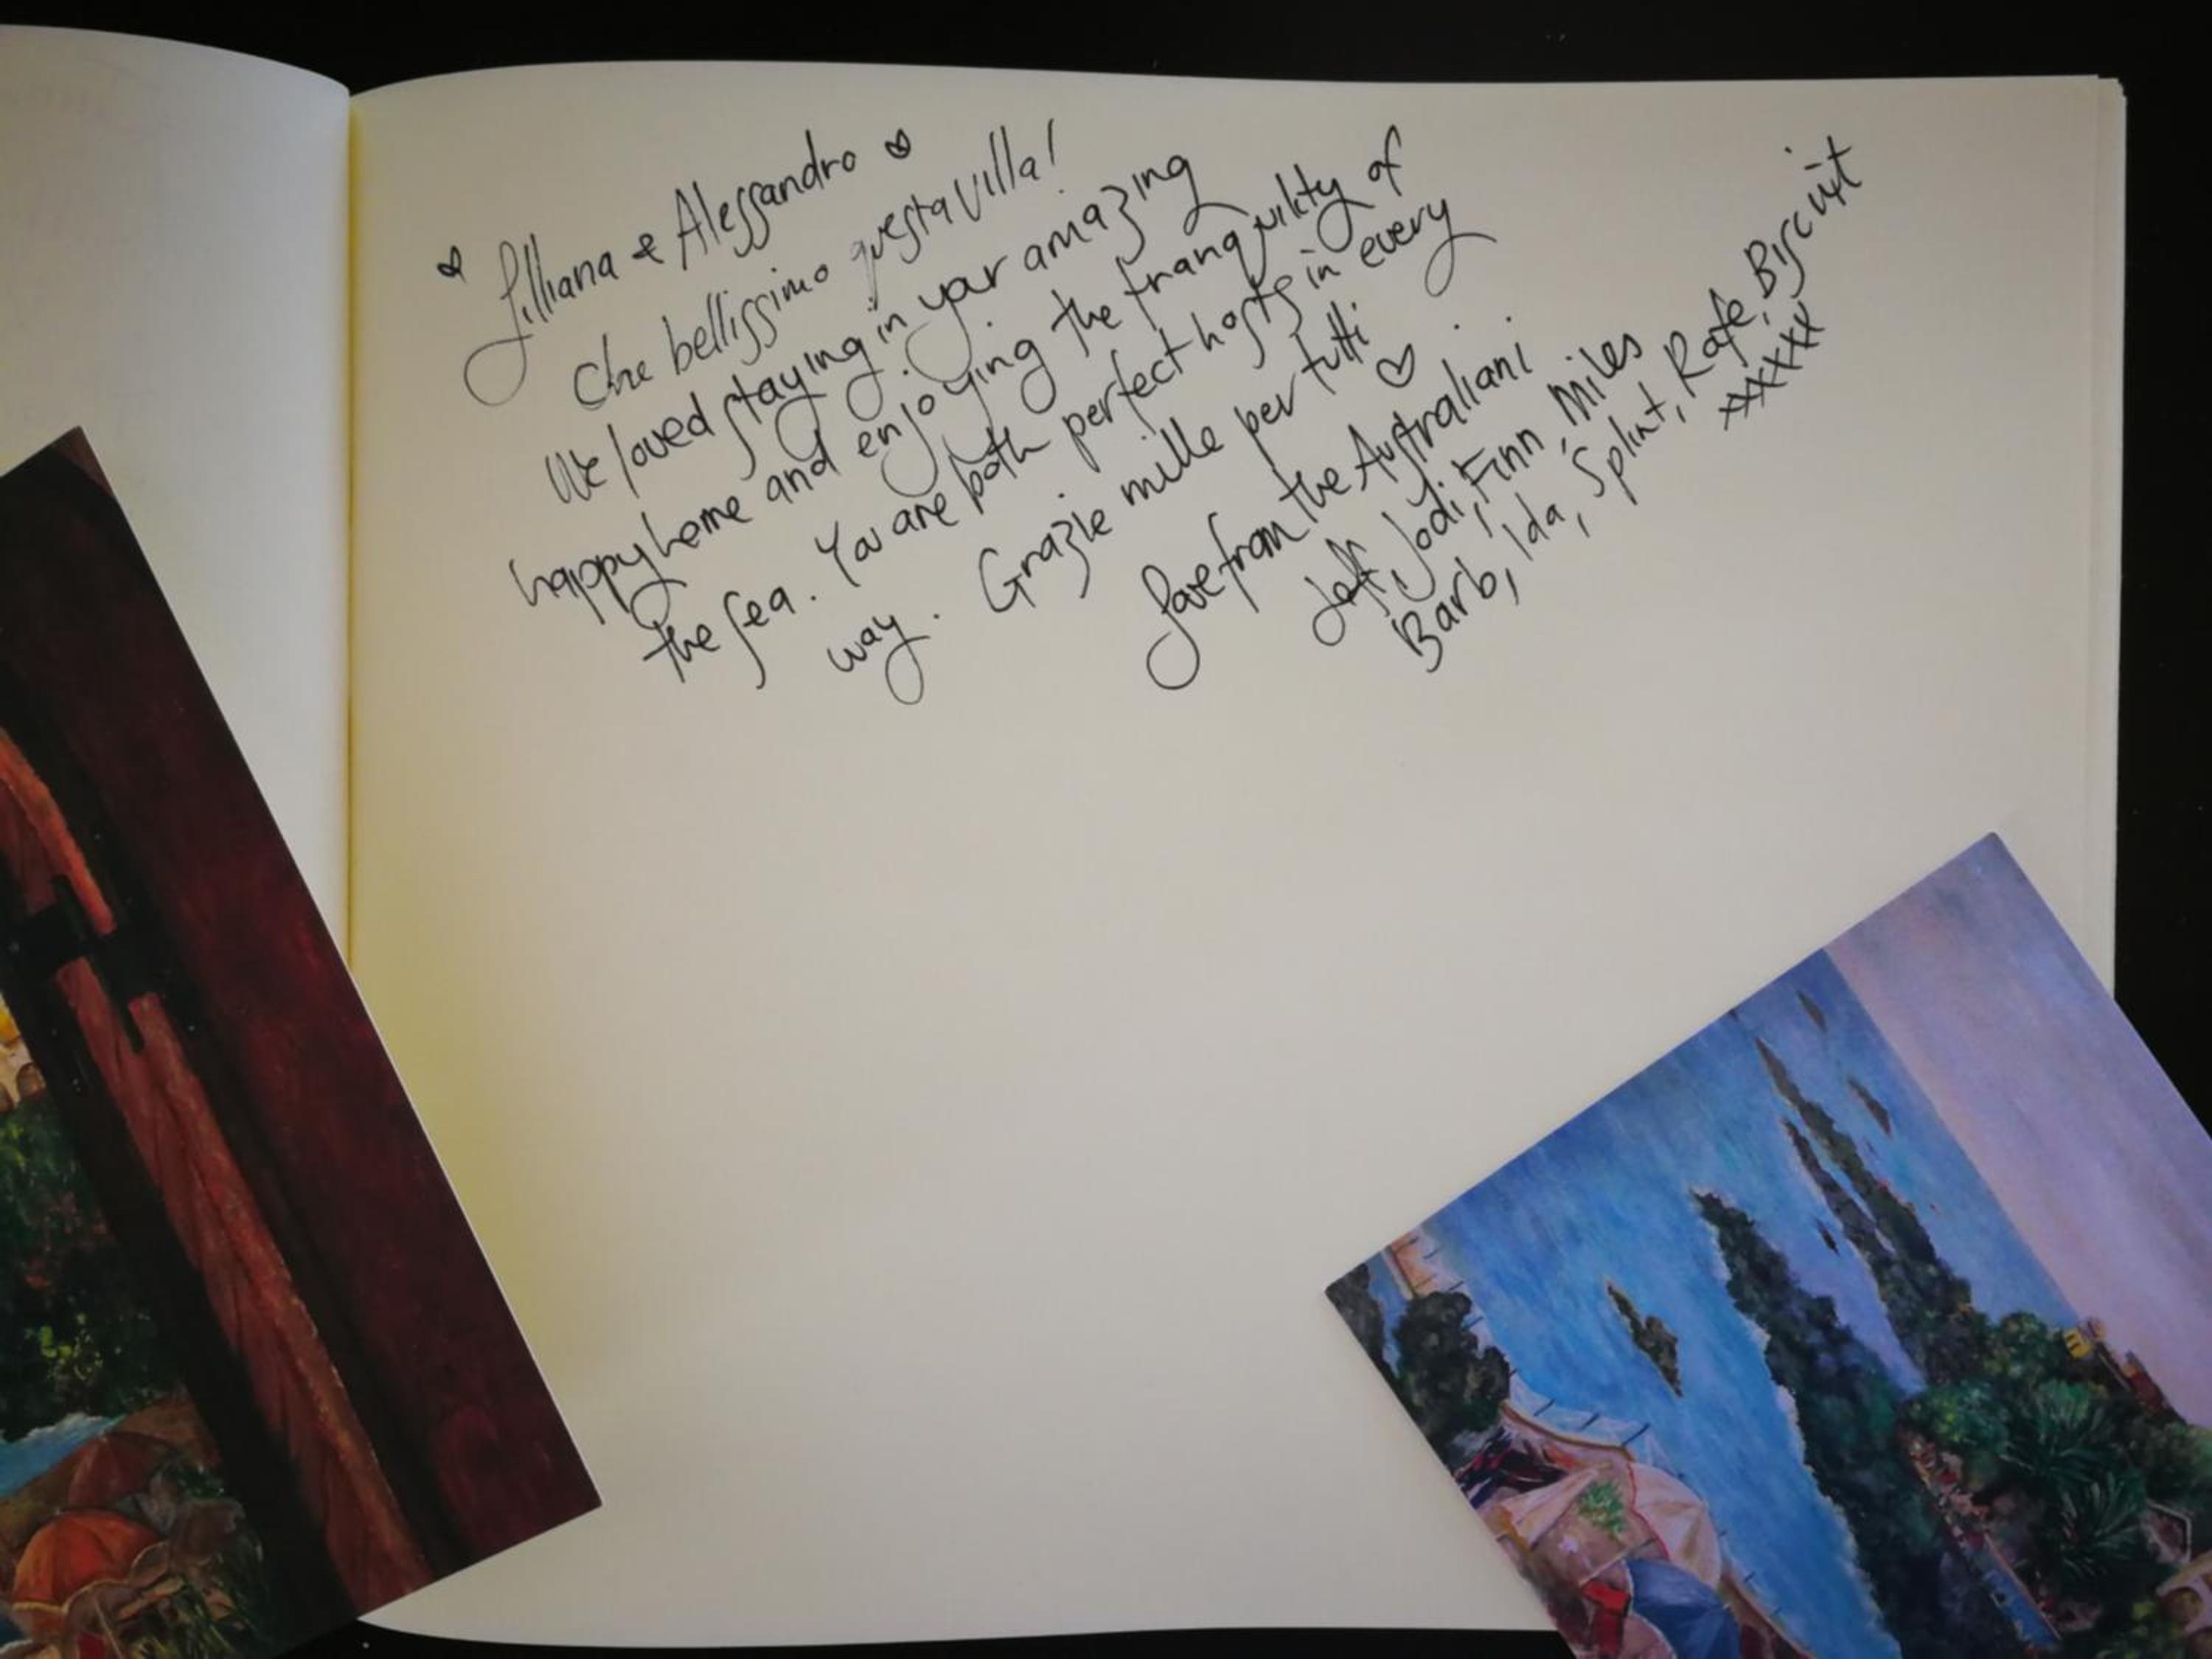 ♡ Lilliana & Alessandro ♡
Che bellissimo questa villa!
We loved staying in your amazing
happy home and enjoying the tranquility of
the sea. You are both perfect hosts in every
way. Grazie mille per tutti ♡
Love from the Australiani
Jeff, Jodi, Finn, Miles
Barb, Ida, Splint, Rafe, Biscuit
xxxxxx